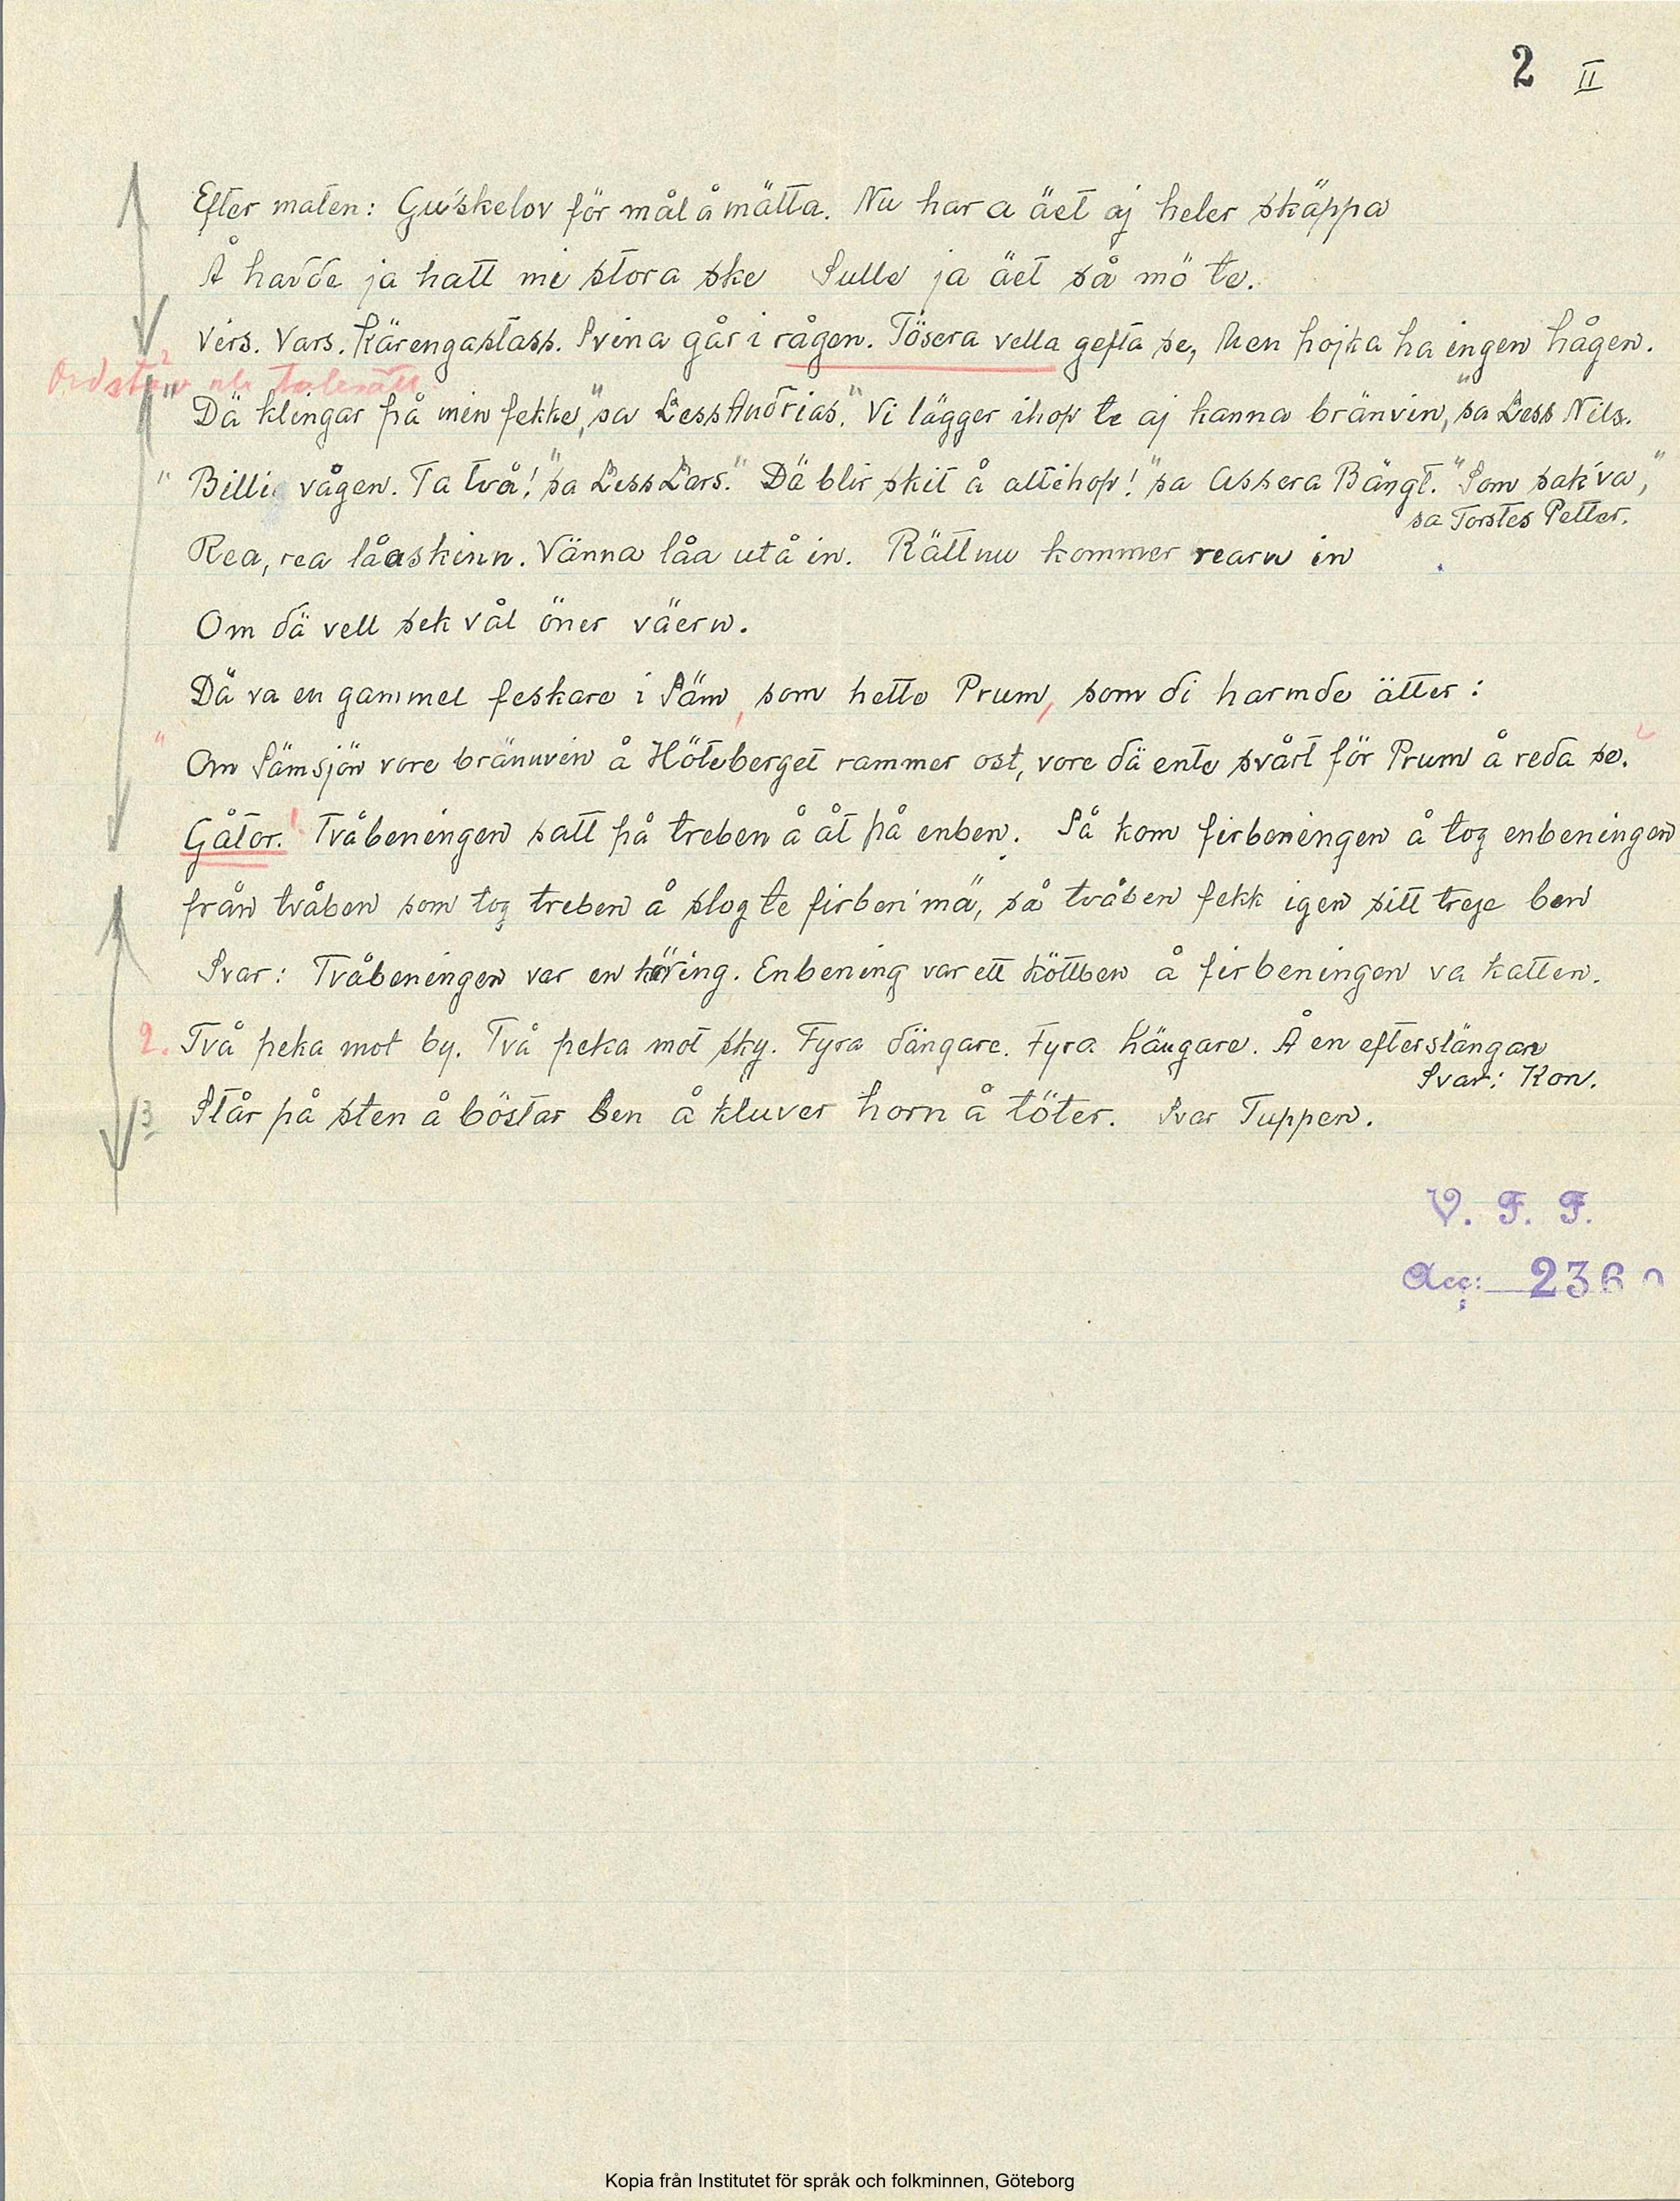 2 II
Efter maten: Gu'skelov för mål å mätta. Nu har a äet aj heler skäppa
Å havde ja hatt mi stora ske Sulle ja äet så mö te.
Vers. Vars. Kärengastass. Svina går i rågen. Tösera vella gefta se, Men pojka ha ingen hågen.
"Dä klingar på min fekke," sa Less Andrias. "Vi lägger ihop te aj kanna bränvin," sa Less Nils.
"Billi vågen. Ta två!" sa Less Lars. "Dä blir skit å altihop!" sa Assera Bängt. "Som sak va,"
sa Torstes Petter.
Rea, rea låaskinn. Vänna låa ut å in. Rätt nu kommer rearn in
Om dä vell sek vål öner väern.
Dä va en gammel feskare i Säm, som hette Prum, som di harmde ätter:
"Om Sämsjön vore brännvin å Höteberget rammer ost, vore dä ente svårt för Prum å reda se."
Gåtor. 1. Tvåbeningen satt på treben å åt på enben. Så kom firbeningen å tog enbeningen
från tvåben som tog treben å slog te firben mä, så tvåben fekk igen sitt treje ben
Svar: Tvåbeningen var en käring. Enbening var ett köttben å firbeningen va katten.
2. Två peka mot by. Två peka mot sky. Fyra dängare. Fyra hängare. Å en efterslängare
Svar: Kon.
3 Står på sten å böstar ben å kluver horn å töter. Svar Tuppen.
V. F. F.
Acc: 2360
Kopia från Institutet för språk och folkminnen, Göteborg